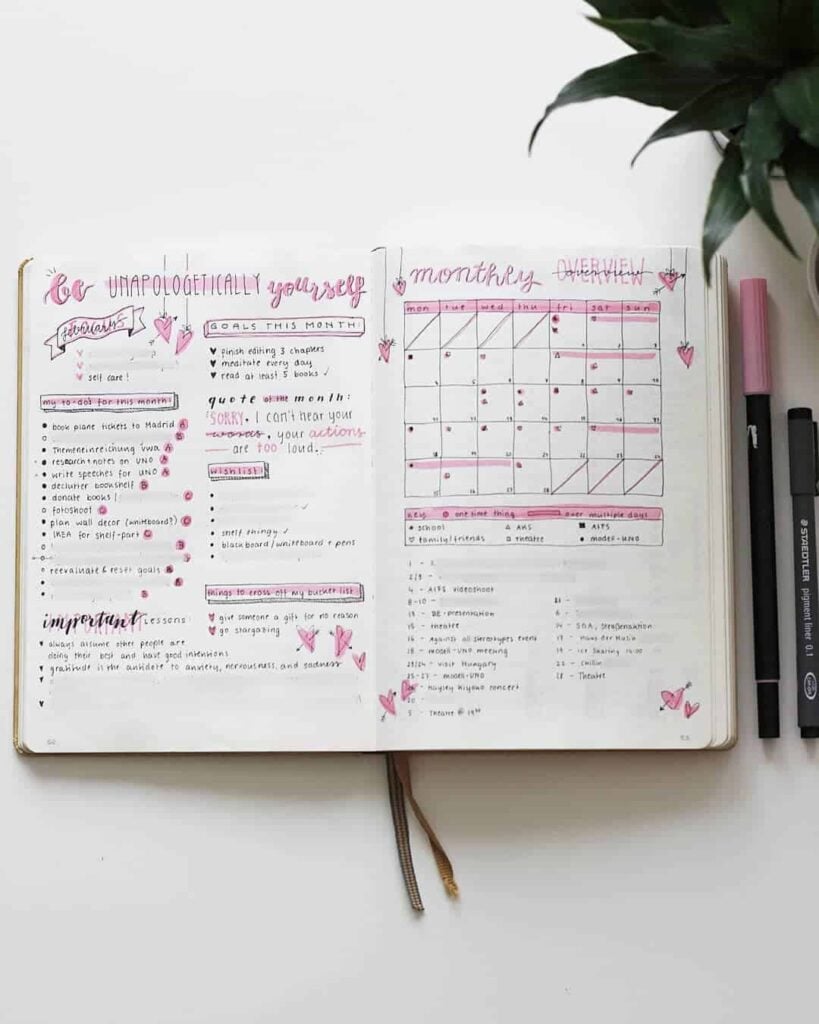 be UNAPOLOGETICALLY yourself
self care!
my to-do's for this month:
book plane tickets to Madrid A
B
Themeneinreichung VWA A
research + notes on UNO A
write speeches for UNO A
declutter bookshelf B
donate books C
fotoshoot C
plan wall decor (whiteboard?) C
IKEA for shelf-part C
B
reevaluate & reset goals B
B
important Lessons
always assume other people are
doing their best and have good intentions
gratitude is the antidote to anxiety, nervousness, and sadness
GOALS THIS MONTH:
finish editing 3 chapters
meditate every day
read at least 5 books ✓
quote of the month:
"SORRY, I can't hear your
words, your actions
are too loud.
wishlist:
shelf thingy ✓
blackboard/whiteboard + pens
things to cross off my bucket list
give someone a gift for no reason
go stargazing
monthly OVERVIEW
mon tue wed thu fri sat sun
key: one time thing over multiple days
school AHS AIFS
family/friends theatre model-UNO
1 -
2/3 -
4 - AIFS videoshoot
8-10 -
13 - BE-presentation
15 - theatre
16 - Against all stereotypes event
18 - model-UNO meeting
23/24 - visit Hungary
25-27 - model-UNO
28 - Hayley Kiyoko concert
20 -
5 - Theatre @ 19
21 -
6 -
14 -
17 - Haus der Musik
19 - Ice Skating
22 - Chillin
18 - Theatre
STAEDTLER
pigment liner 0.1